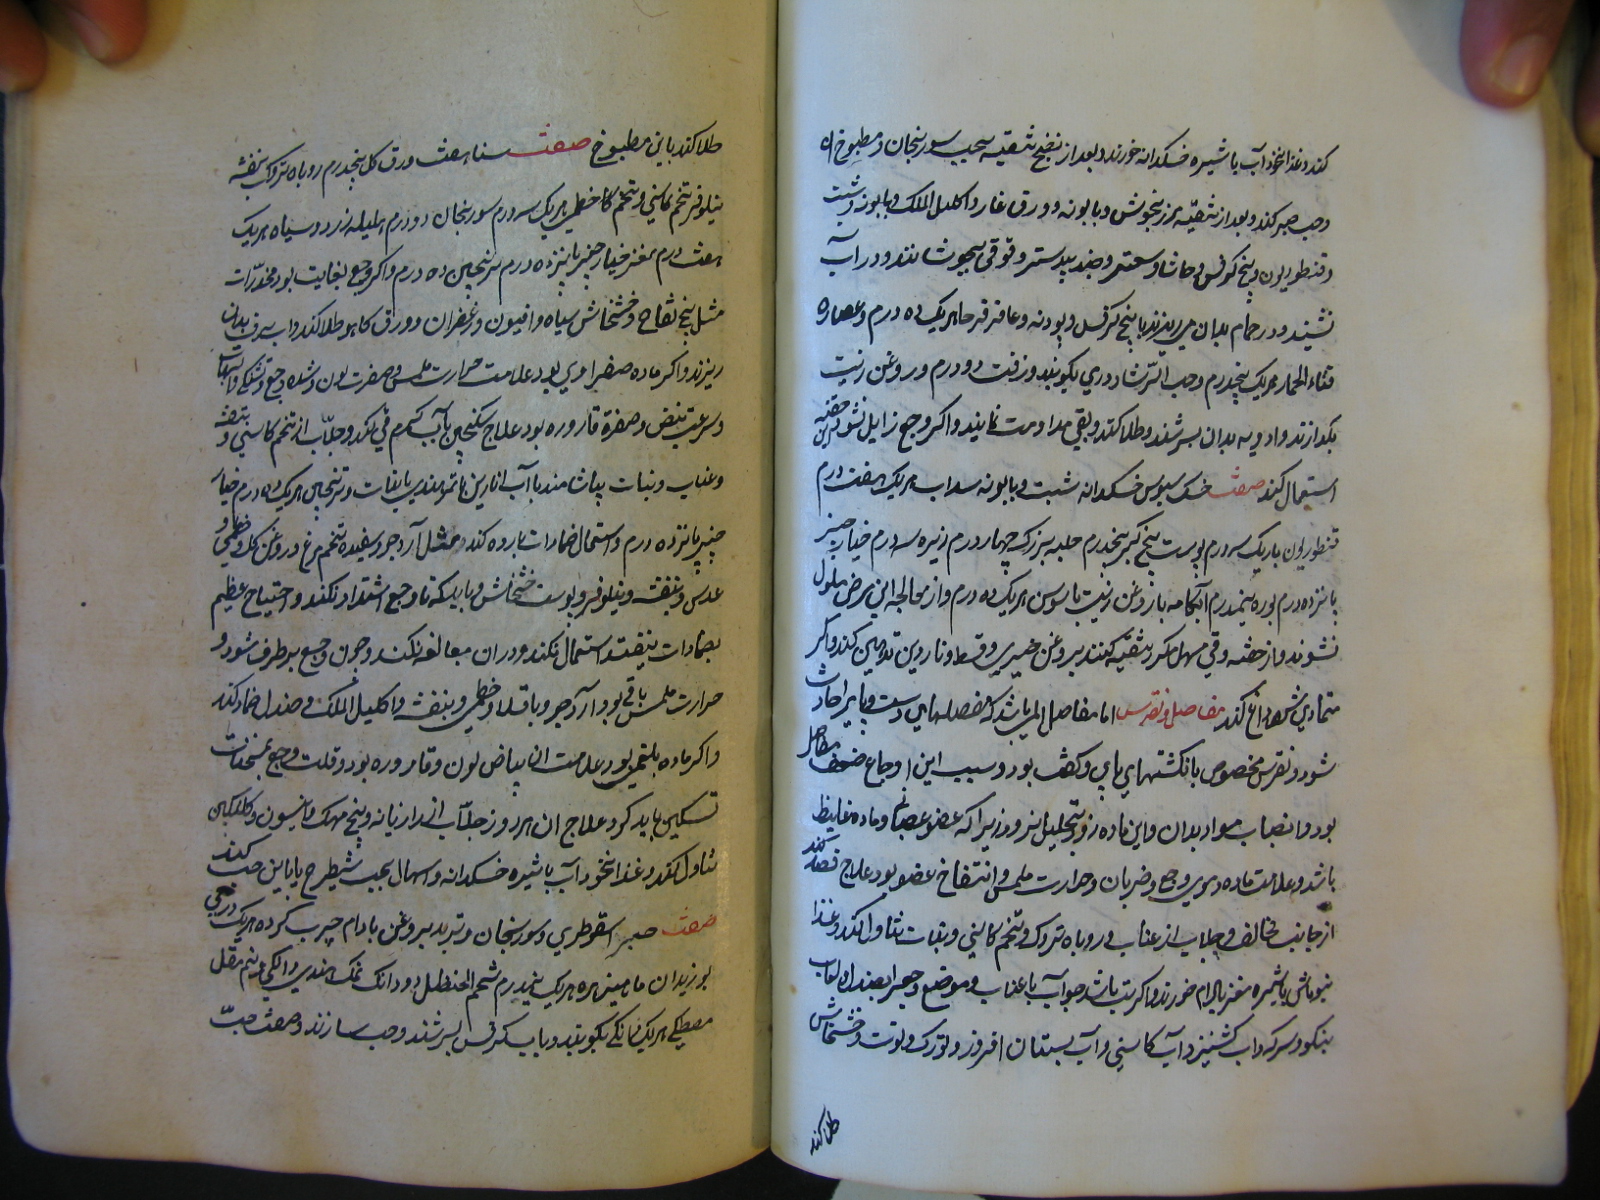 کند و غذا نخودآب با شیره خسکدانه خورند و بعد از نضج تنقیه بحب سورنجان و مطبوخ آن
و حب صبر کند و بعد از تنقیه مرزنجوش و بابونه و ورق غار و اکلیل الملک و بابونه و شبت
و قنطوریون و بیخ کرفس و حاشا و سعتر و جندبیدستر و فوقی بجوشانند و در آب
نشیند و در حمام بدان می ریزند با بیخ کرفس و پودنه و عاقرقرحا هریک ده درم و عصاره
قثاء الحمار هریک پنجدرم و حب الرشاد دری بکوبند و زفت دو درم و روغن زیت
بکدازند و ادویه بدان بسرشند و طلا کنند و بقی مداومت نمایند و اکر وجع زایل نشود حقنه
استعمال کند صفت خسک سبوس خسکدانه شبت و بابونه سداب هریک هفت درم
قنطوریون باریک سه درم پوست بیخ کبر پنجدرم حلبه بزرک چهار درم زیره سه درم خیار چنبر
پانزده درم بوره نیمدرم آبکامه با روغن زیت با سوسن هریک ده درم و از معالجه این مرض ملول
نشوند و از حقنه و قی مسهل مکرر تنقیه کنند بروغن خیری و قسط و ناردین تدهین کند و اکر
متمادی شود داغ کند مفاصل و نقرس اما مفاصل المی باشد که مفصلهای دست و پا را حادث
شود و نقرس مخصوص بانکشتهای پای و کعب بود و سبب این اوجاع ضعف مفاصل
بود و انصباب مواد بدان و این ماده زود بتحلیل نرود زیرا که عضو عصبانی و ماده غلیظ
باشد و علامت ماده دموی وجع و ضربان و حرارت ملمس و انتفاخ عضو بود علاج فصد کند
از جانب مخالف و جلاب از عناب و روباه تردک و تخم کاسنی و نبات تناول کند و غذا
نیوماش با شیره مغز بادام خورند و اکر تب باشد جوآب با عناب و موضع وجع را بصندل و لعاب
بنکو و سرکه و آب کشنیز و آب کاسنی و آب بستان افروز و تورک و توت و خشخاش
طلا کند
طلا کند باین مطبوخ صفت سنا هفت ورق کل پنجدرم روباه تردک بنفشه
نیلوفر تخم کاسنی و تخم کا خطمی هریک سه درم سورنجان دو درم هلیله زرد و سیاه هریک
هفت درم مغز خیار چنبر پانزده درم ترنجبین ده درم و اکر وجع بغایت بود مخدرات
مثل بیخ تفاح و خشخاش سیاه و افیون و زعفران و ورق کاهو طلا کند و آب برف بدان
ریزند و اکر ماده صفراوی بود علامت حرارت ملمس و صفرت لون و شده وجع و تشنکی و التهاب
و سرعت نبض و صفرة قاروره بود علاج سکنجبین بآب کرم قی کند و جلاب از تخم کاسنی و بنفشه
و عناب و نبات بیاشامند با آب انارین با تمرهندی با نبات و ترنجبین هریک ده درم خیار
چنبر پانزده درم و استعمال ضمادات بارده کند مثل آرد جو و سفیده تخم مرغ و روغن کل و خطمی و
عدس و بنفشه و نیلوفر و پوست خشخاش و باید که تا وجع اشتداد نکند و احتیاج عظیم
بضمادات نیفتد استعمال نکند و در آن مبالغه نکند و چون وجع برطرف شود و
حرارت ملمس باقی بود آرد جو و باقلا و خطمی و بنفشه و اکلیل الملک و صندل ضماد کند
و اکر ماده بلغمی بود علامت آن بیاض لون و قاروره بود و قلت وجع بمسخنات
تسکین باید کرد علاج آن هر روز جلاب از رازیانه و بیخ مهک و انیسون و کلنکبین
تناول کند و غذا نخودآب با شیره خسکدانه و اسهال بحب شیطرج یا باین حب کند
صفت صبر اسقوطری و سورنجان و تربد بروغن بادام چرب کرده هریک درمی
بوزیدان ماهیزهره هریک نیمدرم شحم الحنظل دو دانک نمک هندی دانکی و نیم مقل
مصطکی هریک دانکی بکوبند و باب کرفس بسرشند و حب سازند و صفت حب